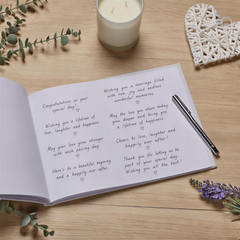 Congratulations on your
special day!
Wishing you a lifetime of
love, laughter and happiness.
May your love grow stronger
with each passing day.
Here's to a beautiful beginning
and a happily ever after.
Wishing you a marriage filled
with love, joy and endless
wonderful memories.
May the love you share today
grow deeper and bring you
a lifetime of happiness.
Cheers to love, laughter and
happily ever after!
Thank you for letting us be
part of your special day.
Wishing you all the best!